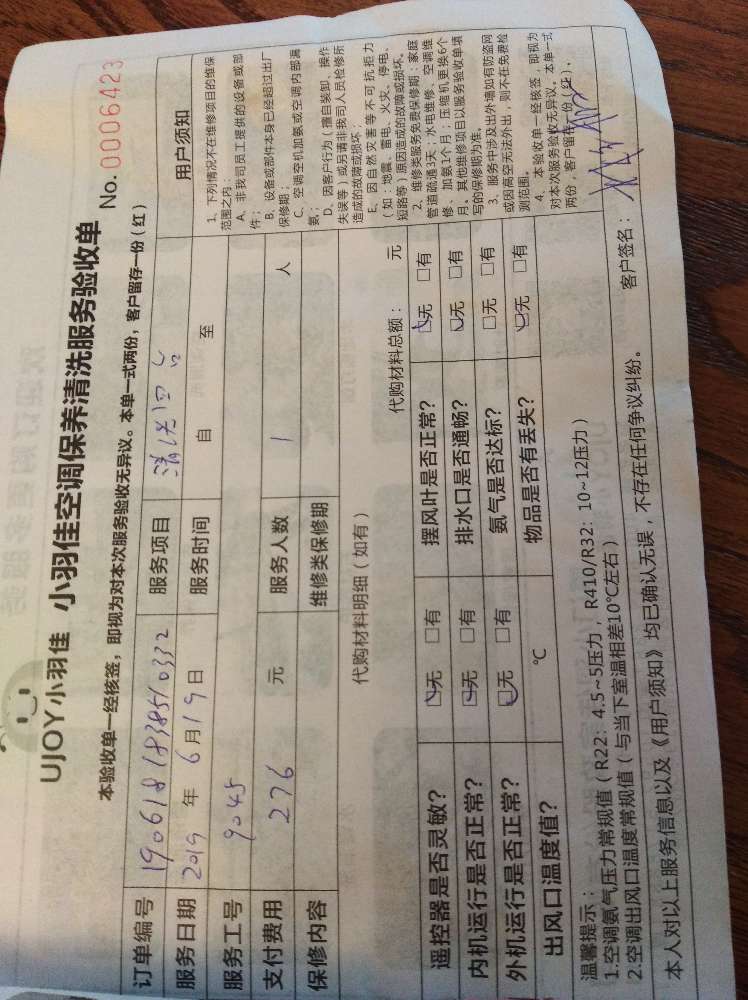 UJOY小羽佳 小羽佳空调保养清洗服务验收单
No. 0006423
本验收单一经核签，即视为对本次服务验收无异议。本单一式两份，客户留存一份（红）
订单编号 190618183850332 服务项目 清洗四台
服务日期 2019 年 6 月 19 日 服务时间 自 至
服务工号 9045
支付费用 276 元 服务人数 1 人
保修内容 维修类保修期
代购材料明细（如有） 代购材料总额： 元
遥控器是否灵敏？ □无 □有 摆风叶是否正常？ □无 □有
内机运行是否正常？ □无 □有 排水口是否通畅？ □无 □有
外机运行是否正常？ □无 □有 氨气是否达标？ □无 □有
出风口温度值？ ℃ 物品是否有丢失？ □无 □有
用户须知
1、下列情况不在维修项目的维保
范围之内：
A、非我司员工提供的设备或部
件；
B、设备或部件本身已经超过出厂
保修期；
C、空调空机加氨或空调内部漏
氨；
D、因客户行为（擅自装卸、操作
失误等）或另请非我司人员检修所
造成的故障或损坏；
E、因自然灾害等不可抗拒力
（如：地震、雷电、火灾、停电、
短路等）原因造成的故障或损坏。
2、维修类服务免费保修期：家庭
管道疏通3天；水电维修、空调维
修、加氨1个月；压缩机更换6个
月。其他维修项目以服务验收单填
写的保修期为准。
3、服务中涉及出外墙如有防盗网
或因高空无法外出，则不在免费检
测范围。
4、本验收单一经核签，即视为
对本次服务验收无异议。本单一式
两份，客户留存一份（红）。
温馨提示：
1.空调氨气压力常规值（R22：4.5~5压力，R410/R32：10~12压力）
2.空调出风口温度常规值（与当下室温相差10℃左右）
本人对以上服务信息以及《用户须知》均已确认无误，不存在任何争议纠纷。 客户签名：